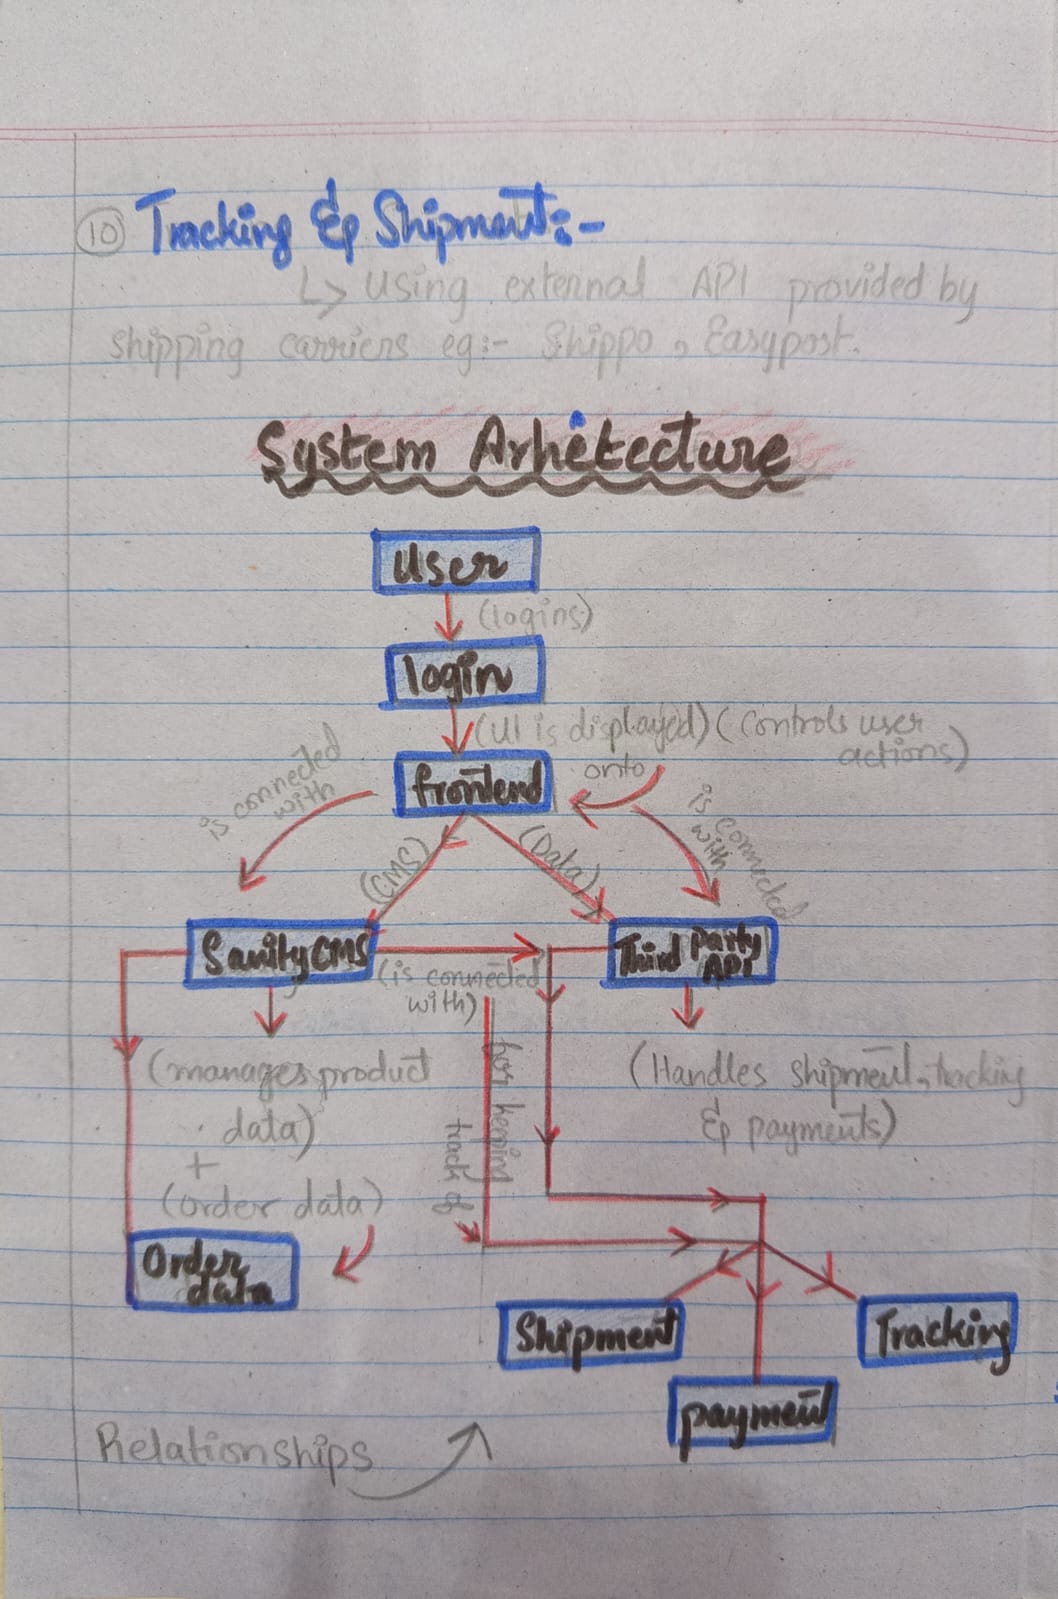 10 Tracking & Shipment:-
↳ Using external API provided by
shipping carriers eg:- Shippo, Easypost.
System Arhitecture
User
(logins)
login
(UI is displayed) (Controls user
actions)
onto
frontend
is connected
with
is connected
with
(CMS)
(Data)
Sanity CMS
Third Party
API
(is connected
with)
(manages product
data)
+
(order data)
for keepind
track of
(Handles shipment, tracking
& payments)
Order
data
Shipment
Tracking
payment
Relationships